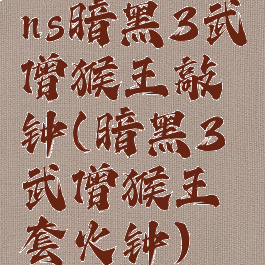 ns暗黑3武
僧猴王敲
钟(暗黑3
武僧猴王
套火钟)